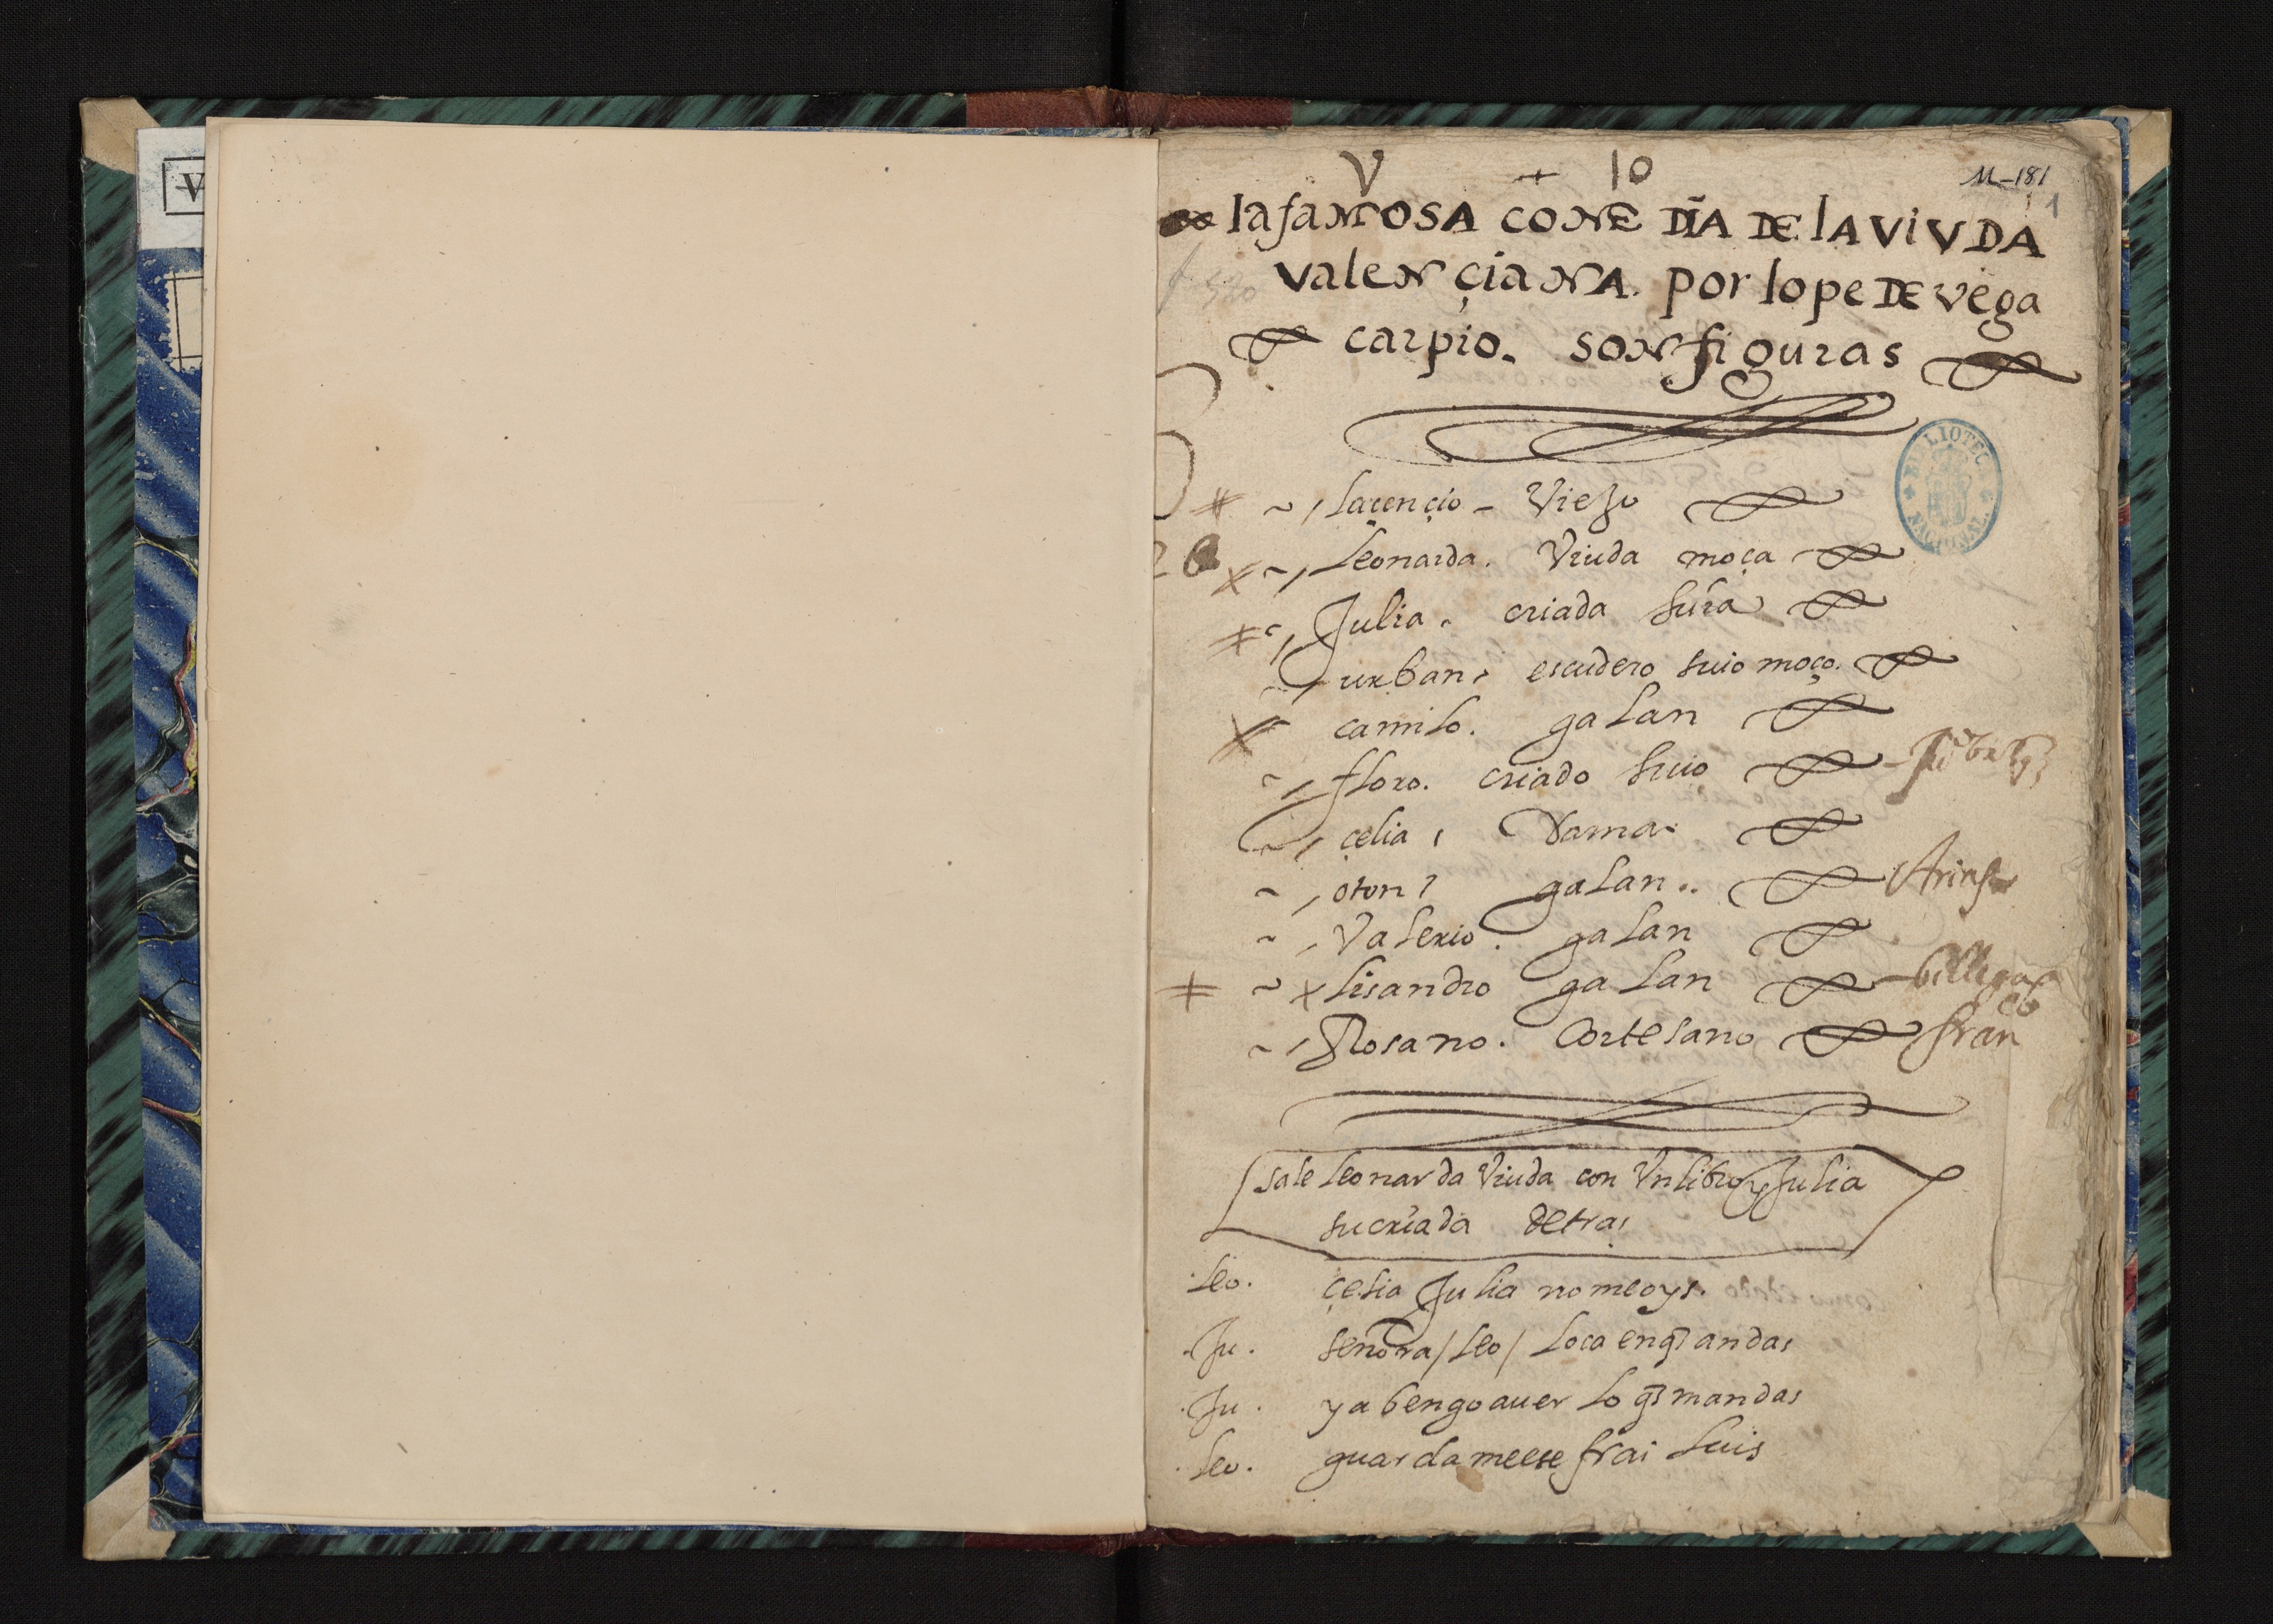 V + 10
M-181
1
la famosa comedia de la viuda
valençiana. por lope de vega
carpio. son figuras
BIBLIOTECA NACIONAL
larençio - viejo
Leonarda. viuda moça
Julia. criada suia
urban, escudero suio moço.
camilo. galan
floro. criado suio
çelia, dama.
oton, galan..
Valerio. galan
lisandro galan billegas
Rosano. cortesano franco
sale leonarda viuda con un libro y Julia
su criada detras
leo. çelia Julia no me oys.
Ju. señora / leo / loca en q̃ andas
Ju. ya bengo a uer lo q̃ mandas
leo. guardame ese frai luis